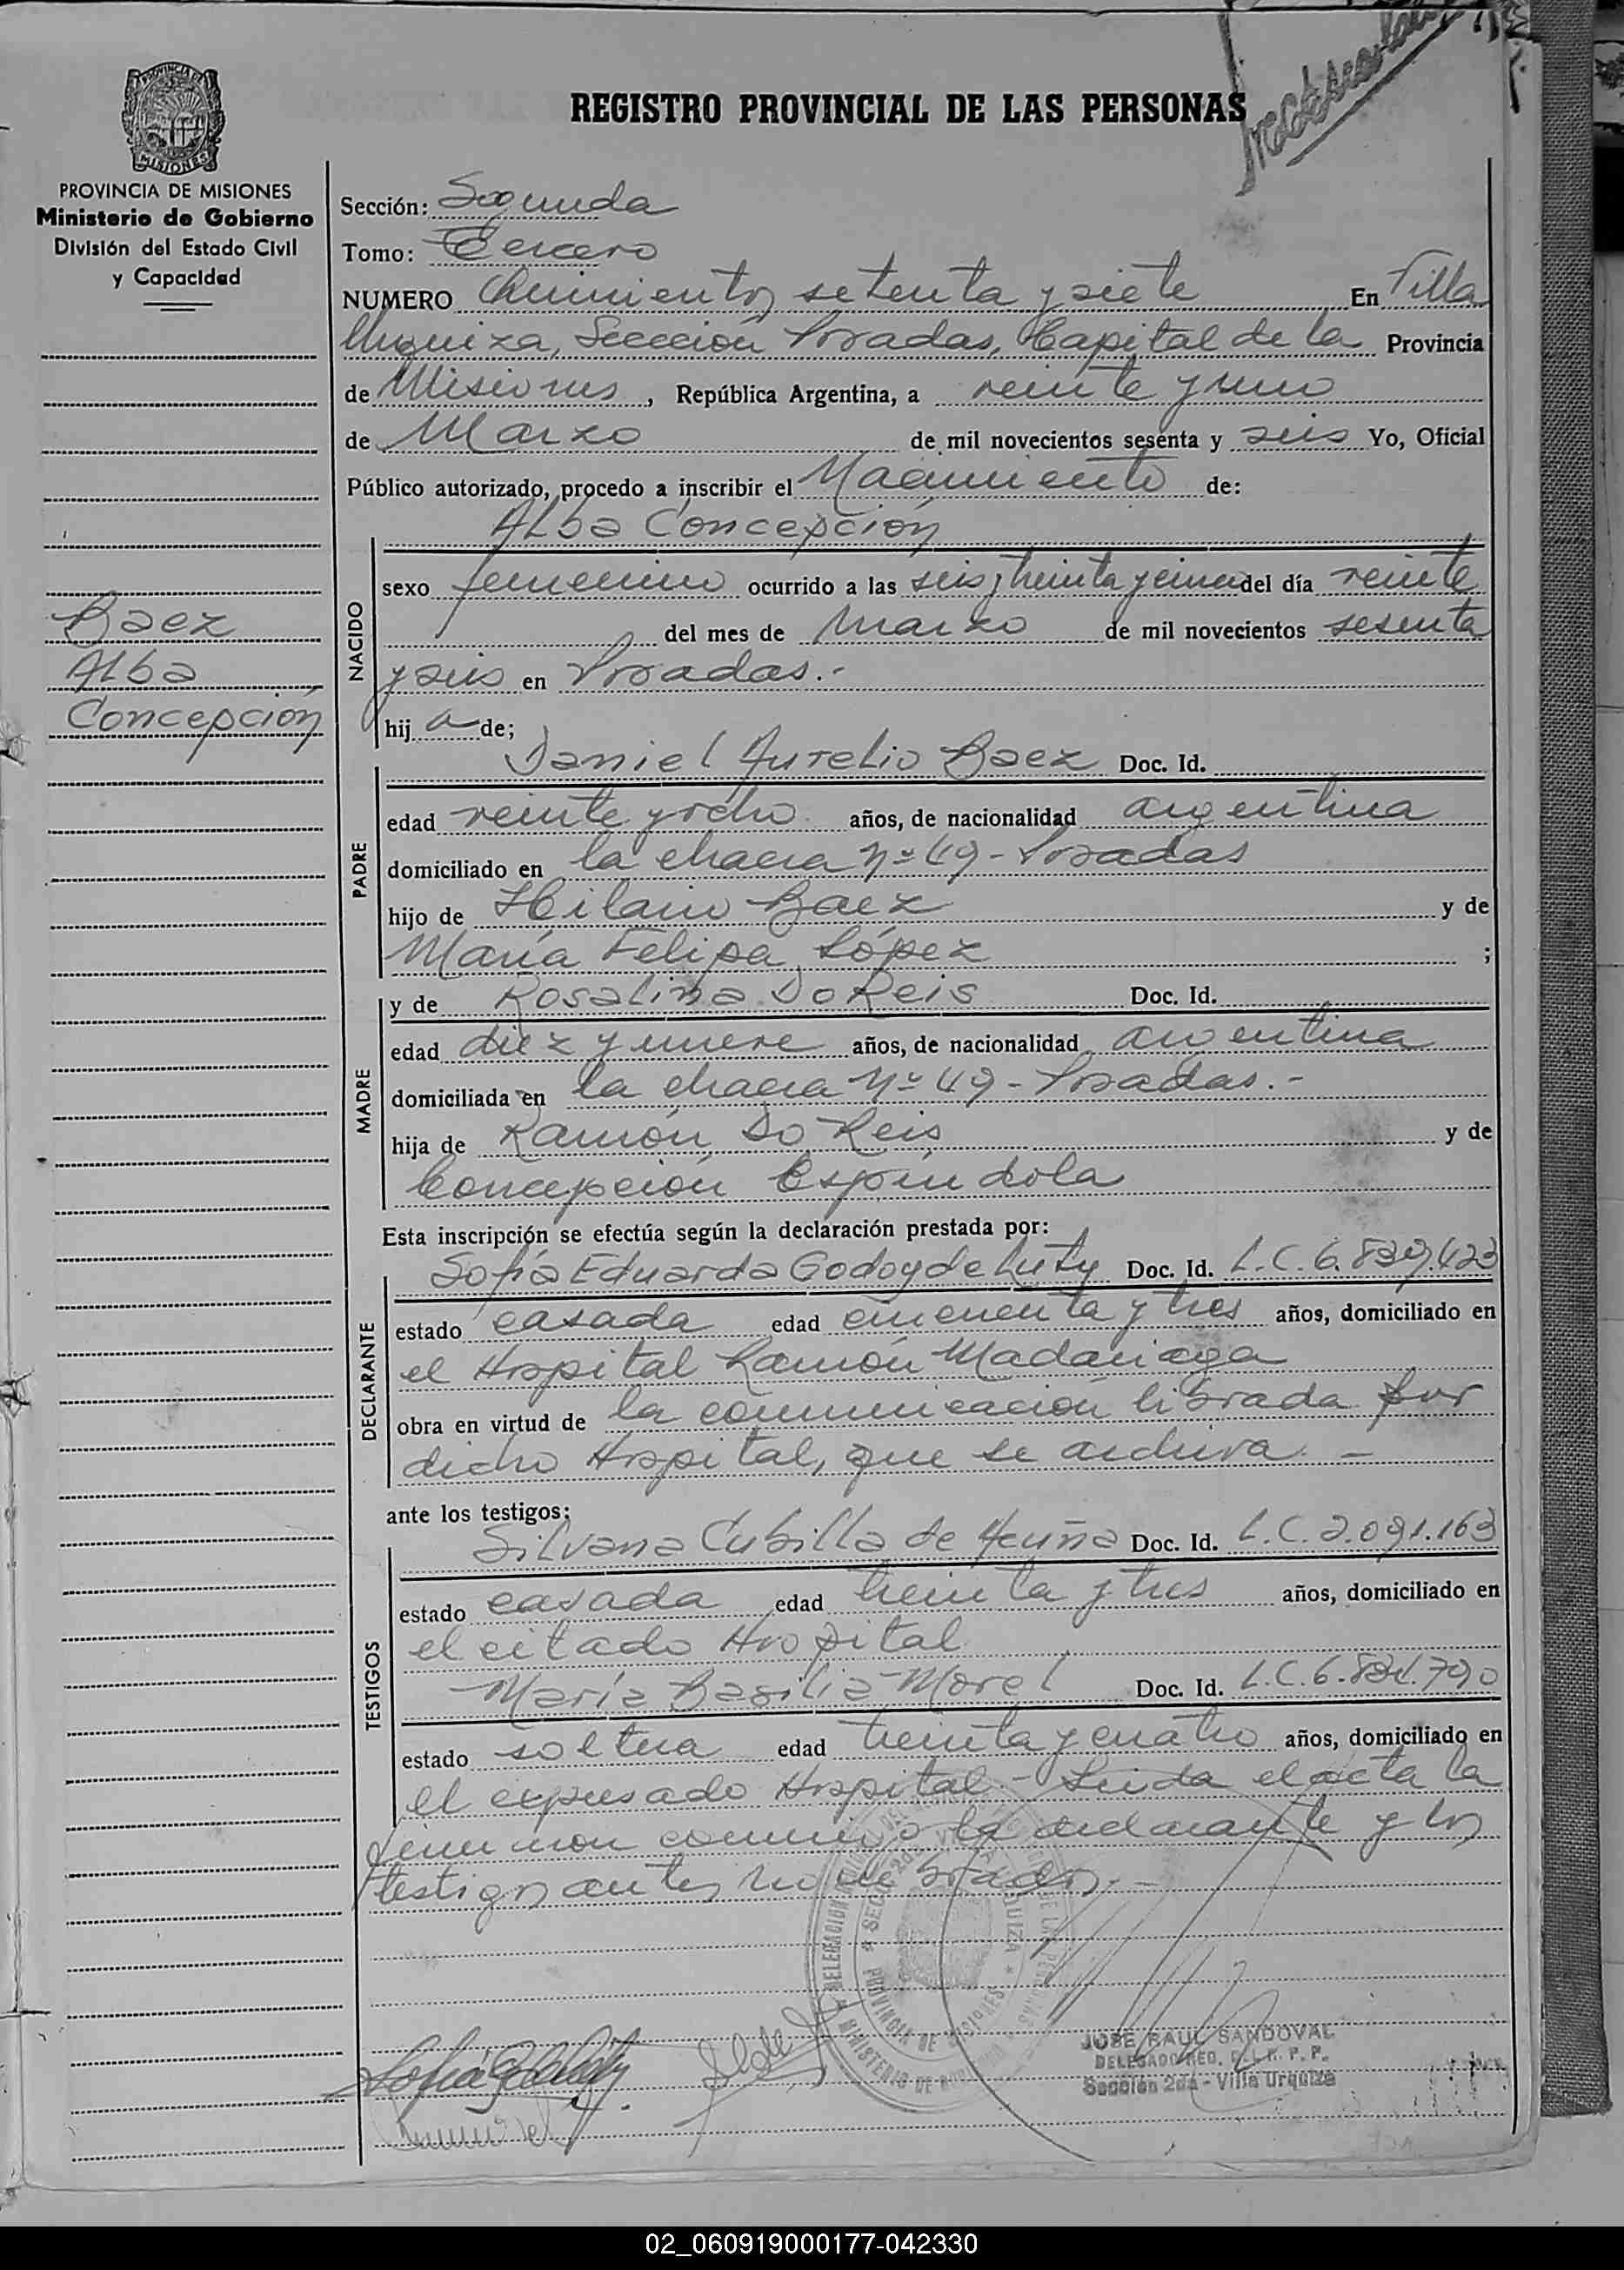 REGISTRO PROVINCIAL DE LAS PERSONAS
PROVINCIA DE MISIONES
PROVINCIA DE MISIONES
Ministerio de Gobierno
División del Estado Civil
y Capacidad
Baez
Alba
Concepción
Sección: Segunda
Tomo: Tercero
NUMERO Quinientos setenta y siete En Villa
Urquiza, Sección Posadas, Capital de la Provincia
de Misiones, República Argentina, a veinte y uno
de Marzo de mil novecientos sesenta y seis Yo, Oficial
Público autorizado, procedo a inscribir el Nacimiento de:
Alba Concepción
NACIDO
sexo femenino ocurrido a las seis y treinta y cinco del día veinte
del mes de marzo de mil novecientos sesenta
y seis en Posadas.-
hij a de;
Daniel Aurelio Baez Doc. Id.
PADRE
edad veinte y ocho años, de nacionalidad argentina
domiciliado en la chacra Nº 49 - Posadas
hijo de Hilario Baez y de
María Felipa López ;
MADRE
y de Rosalina Do Reis Doc. Id.
edad diez y nueve años, de nacionalidad argentina
domiciliada en la chacra Nº 49 - Posadas.-
hija de Ramón Do Reis y de
Concepción Espíndola
Esta inscripción se efectúa según la declaración prestada por:
Sofía Eduarda Godoy de Doc. Id. L.C. 6.839.423
DECLARANTE
estado casada edad cincuenta y tres años, domiciliado en
el Hospital Ramón Madariaga
obra en virtud de la comunicación librada por
dicho Hospital, que se archiva. -
ante los testigos:
Silvana Cubilla de Acuña Doc. Id. L.C. 2.091.163
TESTIGOS
estado casada edad treinta y tres años, domiciliado en
el citado Hospital
María Basilia Morel Doc. Id. L.C. 6.831.790
estado soltera edad treinta y cuatro años, domiciliado en
el expresado Hospital.- Leida el acta la
firmaron conmigo la declarante y los
testigos antes nombrados.-
JOSE RAUL SANDOVAL
Sección 2da - Villa Urquiza
02_060919000177-042330